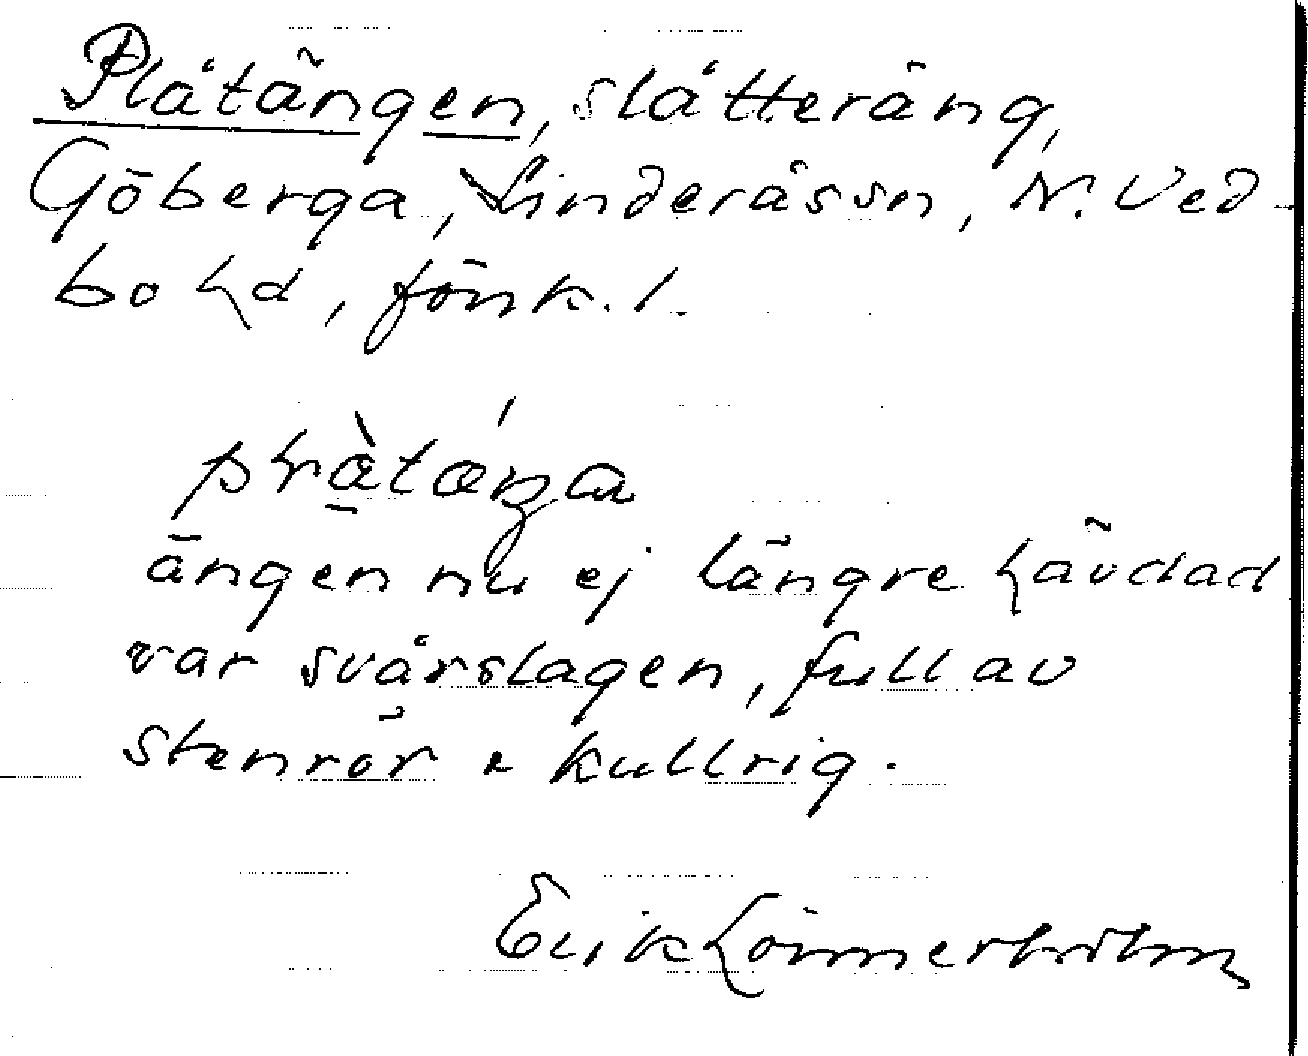 Plåtängen, slåtteräng,
Göberga, Linderås sn, N. Ved-
bo hd, Jönk. l.
ängen nu ej längre hävdad
var svårslagen, full av
stenrör & kullrig.
Erik Lönnerholm